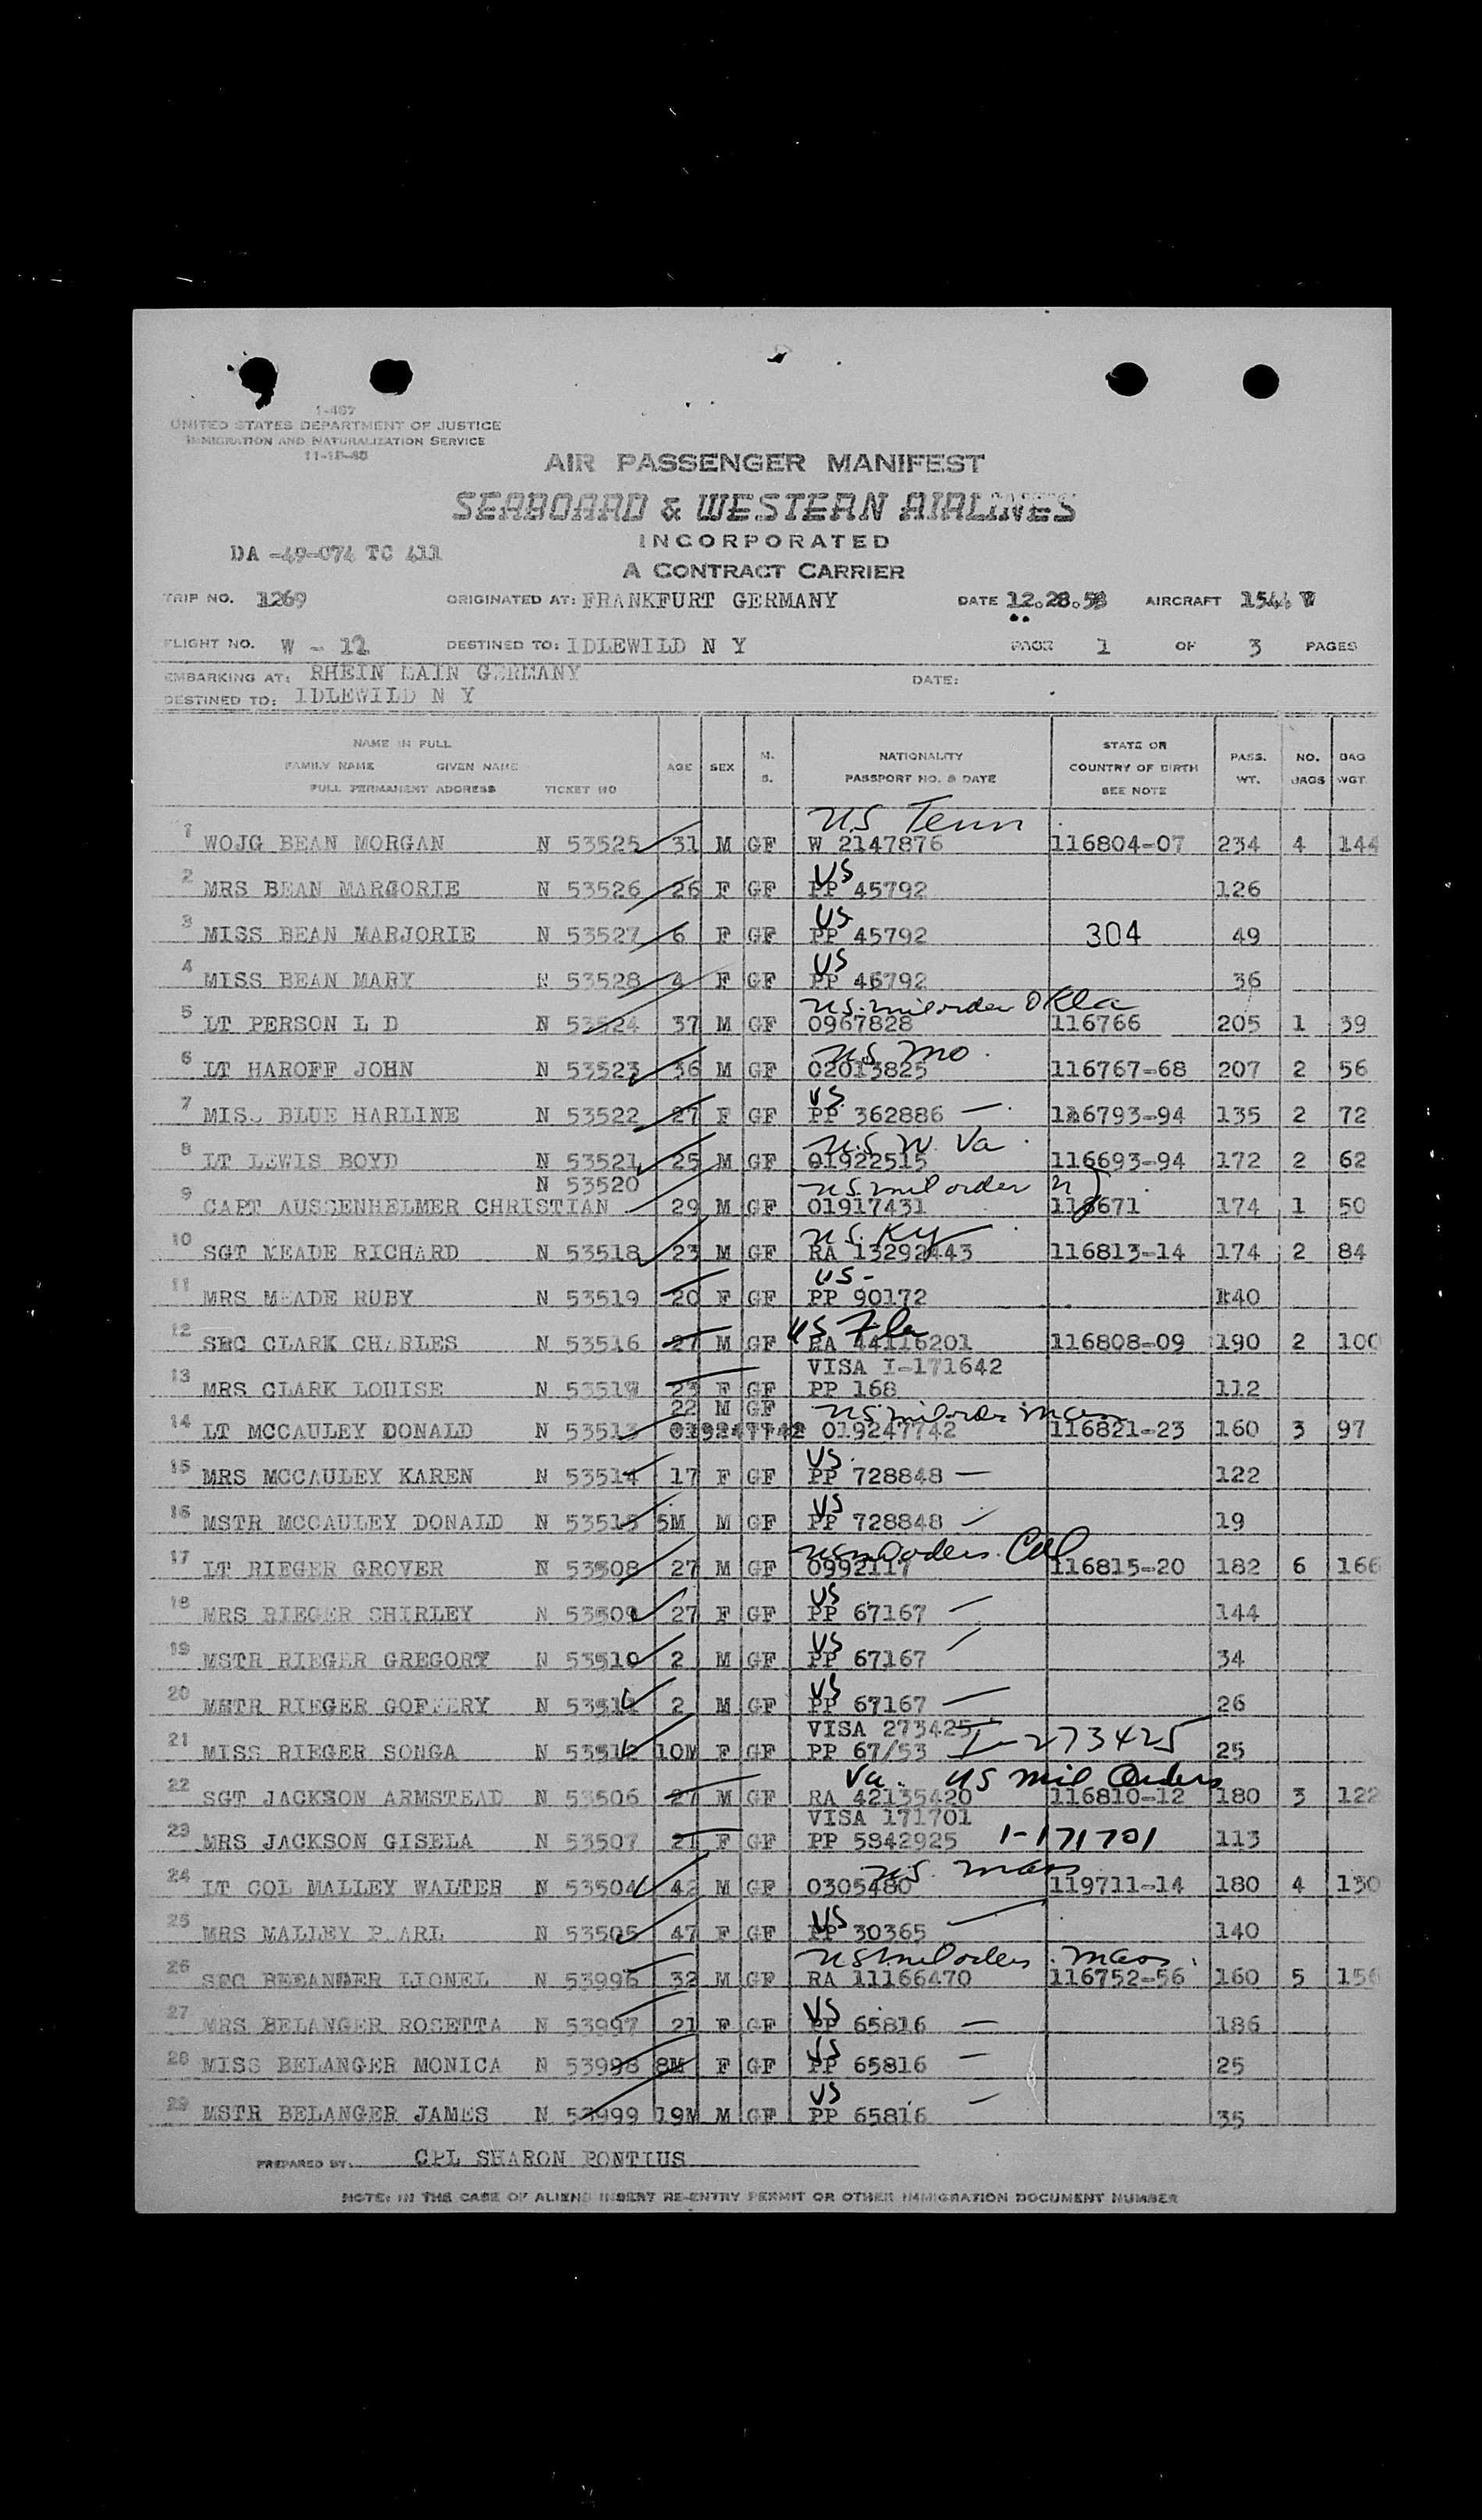 1-467
UNITED STATES DEPARTMENT OF JUSTICE
IMMIGRATION AND NATURALIZATION SERVICE
AIR PASSENGER MANIFEST
SEABOARD & WESTERN AIRLINES
INCORPORATED
DA -49-074 TC 411
A CONTRACT CARRIER
TRIP NO. 1269 ORIGINATED AT: FRANKFURT GERMANY DATE 12.28.53 AIRCRAFT 1544 W
FLIGHT NO. W - 12 DESTINED TO: IDLEWILD N Y PAGE 1 OF 3 PAGES
EMBARKING AT: RHEIN MAIN GERMANY DATE:
DESTINED TO: IDLEWILD N Y
NAME IN FULL
FAMILY NAME GIVEN NAME
FULL PERMANENT ADDRESS TICKET NO AGE SEX M. S. NATIONALITY PASSPORT NO. & DATE STATE OR COUNTRY OF BIRTH SEE NOTE PASS. WT. NO. BAGS BAG WGT.
US Tenn
1 WOJG BEAN MORGAN N 53525 31 M GF W 2147876 116804-07 234 4 144
US
2 MRS BEAN MARGORIE N 53526 26 F GF PP 45792 126
US
3 MISS BEAN MARJORIE N 53527 6 F GF PP 45792 304 49
US
4 MISS BEAN MARY N 53528 4 F GF PP 45792 36
US. mil order Okla
5 LT PERSON L D N 53524 37 M GF 0967828 116766 205 1 39
US Mo.
6 LT HAROFF JOHN N 53523 36 M GF 02013825 116767-68 207 2 56
US.
7 MISS BLUE HARLINE N 53522 27 F GF PP 362886 — 116793-94 135 2 72
U.S W. Va.
8 LT LEWIS BOYD N 53521 25 M GF 01922515 116693-94 172 2 62
N 53520 US. mil order NJ
9 CAPT AUSSENHELMER CHRISTIAN 29 M GF 01917431 116671 174 1 50
US. Ky
10 SGT MEADE RICHARD N 53518 23 M GF RA 13292443 116813-14 174 2 84
US-
11 MRS MEADE RUBY N 53519 20 F GF PP 90172 140
US Fla
12 SFC CLARK CHARLES N 53516 27 M GF RA 44116201 116808-09 190 2 100
VISA I-171642
13 MRS CLARK LOUISE N 53517 23 F GF PP 168 112
22 M GF US mil order Mass
14 LT MCCAULEY DONALD N 53513 019247742 019247742 116821-23 160 3 97
US.
15 MRS MCCAULEY KAREN N 53514 17 F GF PP 728848 — 122
US
16 MSTR MCCAULEY DONALD N 53515 5M M GF PP 728848 19
US mil orders. Cal
17 LT RIEGER GROVER N 53508 27 M GF 0992117 116815-20 182 6 166
US
18 MRS RIEGER SHIRLEY N 53509 27 F GF PP 67167 — 144
US
19 MSTR RIEGER GREGORY N 53510 2 M GF PP 67167 34
US
20 MSTR RIEGER GOFFERY N 53511 2 M GF PP 67167 — 26
VISA 273425
21 MISS RIEGER SONGA N 53512 10M F GF PP 67/53 I-273425 25
Va. US Mil Orders
22 SGT JACKSON ARMSTEAD N 53506 27 M GF RA 42135420 116810-12 180 3 122
VISA 171701
23 MRS JACKSON GISELA N 53507 21 F GF PP 5842925 I-171701 113
US. Mass
24 LT COL MALLEY WALTER N 53504 42 M GF 0305480 119711-14 180 4 130
US
25 MRS MALLEY PEARL N 53505 47 F GF PP 30365 — 140
US mil orders. Mass.
26 SFC BELANGER LIONEL N 53996 32 M GF RA 11166470 116752-56 160 5 156
US
27 MRS BELANGER ROSETTA N 53997 21 F GF PP 65816 — 186
US
28 MISS BELANGER MONICA N 53998 8M F GF PP 65816 — 25
US
29 MSTR BELANGER JAMES N 53999 19M M GF PP 65816 — 35
PREPARED BY: CPL SHARON PONTIUS
NOTE: IN THE CASE OF ALIENS INSERT RE-ENTRY PERMIT OR OTHER IMMIGRATION DOCUMENT NUMBER